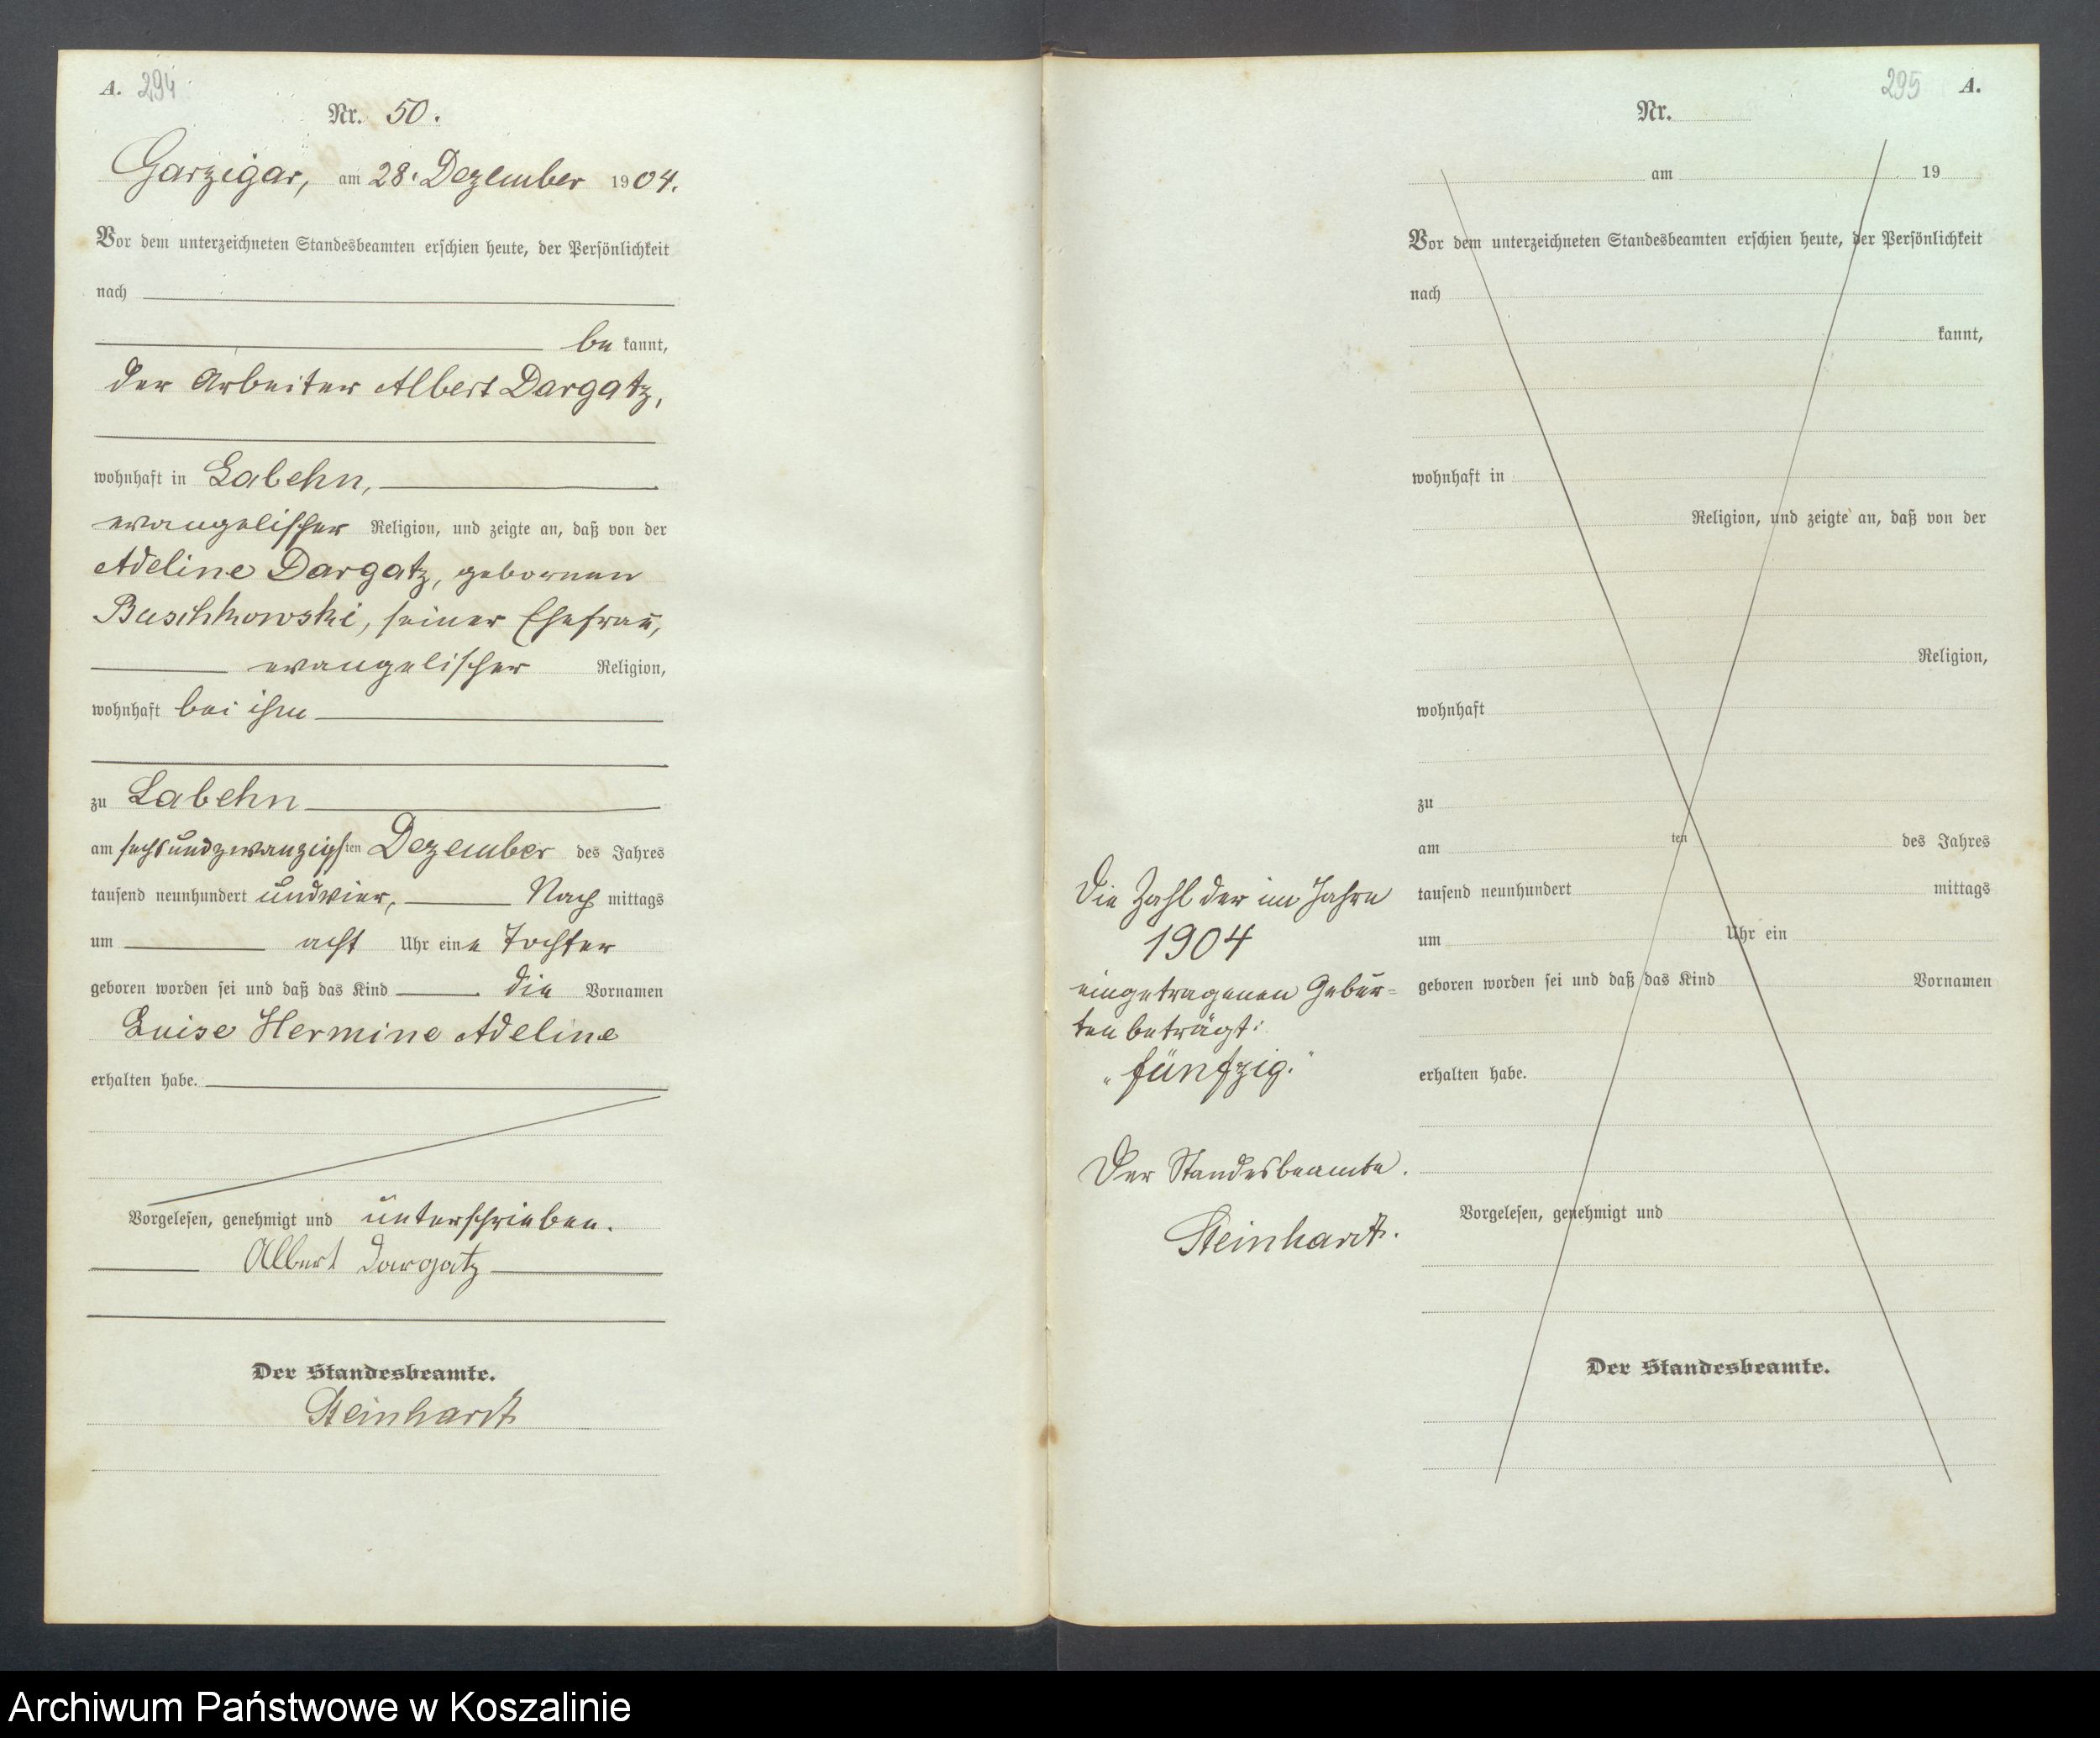 A. 294
Nr. 50.
Garzigar, am 28. Dezember 1904.
Vor dem unterzeichneten Standesbeamten erschien heute, der Persönlichkeit
nach
be kannt,
der Arbeiter Albert Dargatz,
wohnhaft in Labehn,
evangelischer Religion, und zeigte an, daß von der
Adeline Dargatz, gebornen
Buschkowski, seiner Ehefrau,
evangelischer Religion,
wohnhaft bei ihm
zu Labehn
am sechsundzwanzigsten Dezember des Jahres
tausend neunhundert undvier, Nach mittags
um acht Uhr eine Tochter
geboren worden sei und daß das Kind die Vornamen
Luise Hermine Adeline
erhalten habe.
Vorgelesen, genehmigt und unterschrieben.
Albert Dargatz
Der Standesbeamte.
Steinhardt
295 A.
Nr.
am 19
Vor dem unterzeichneten Standesbeamten erschien heute, der Persönlichkeit
nach
kannt,
wohnhaft in
Religion, und zeigte an, daß von der
Religion,
wohnhaft
zu
am ten des Jahres
tausend neunhundert mittags
um Uhr ein
geboren worden sei und daß das Kind Vornamen
erhalten habe.
Vorgelesen, genehmigt und
Der Standesbeamte.
Die Zahl der im Jahre
1904
eingetragenen Gebur-
ten beträgt:
"fünfzig."
Der Standesbeamte.
Steinhardt.
Archiwum Państwowe w Koszalinie